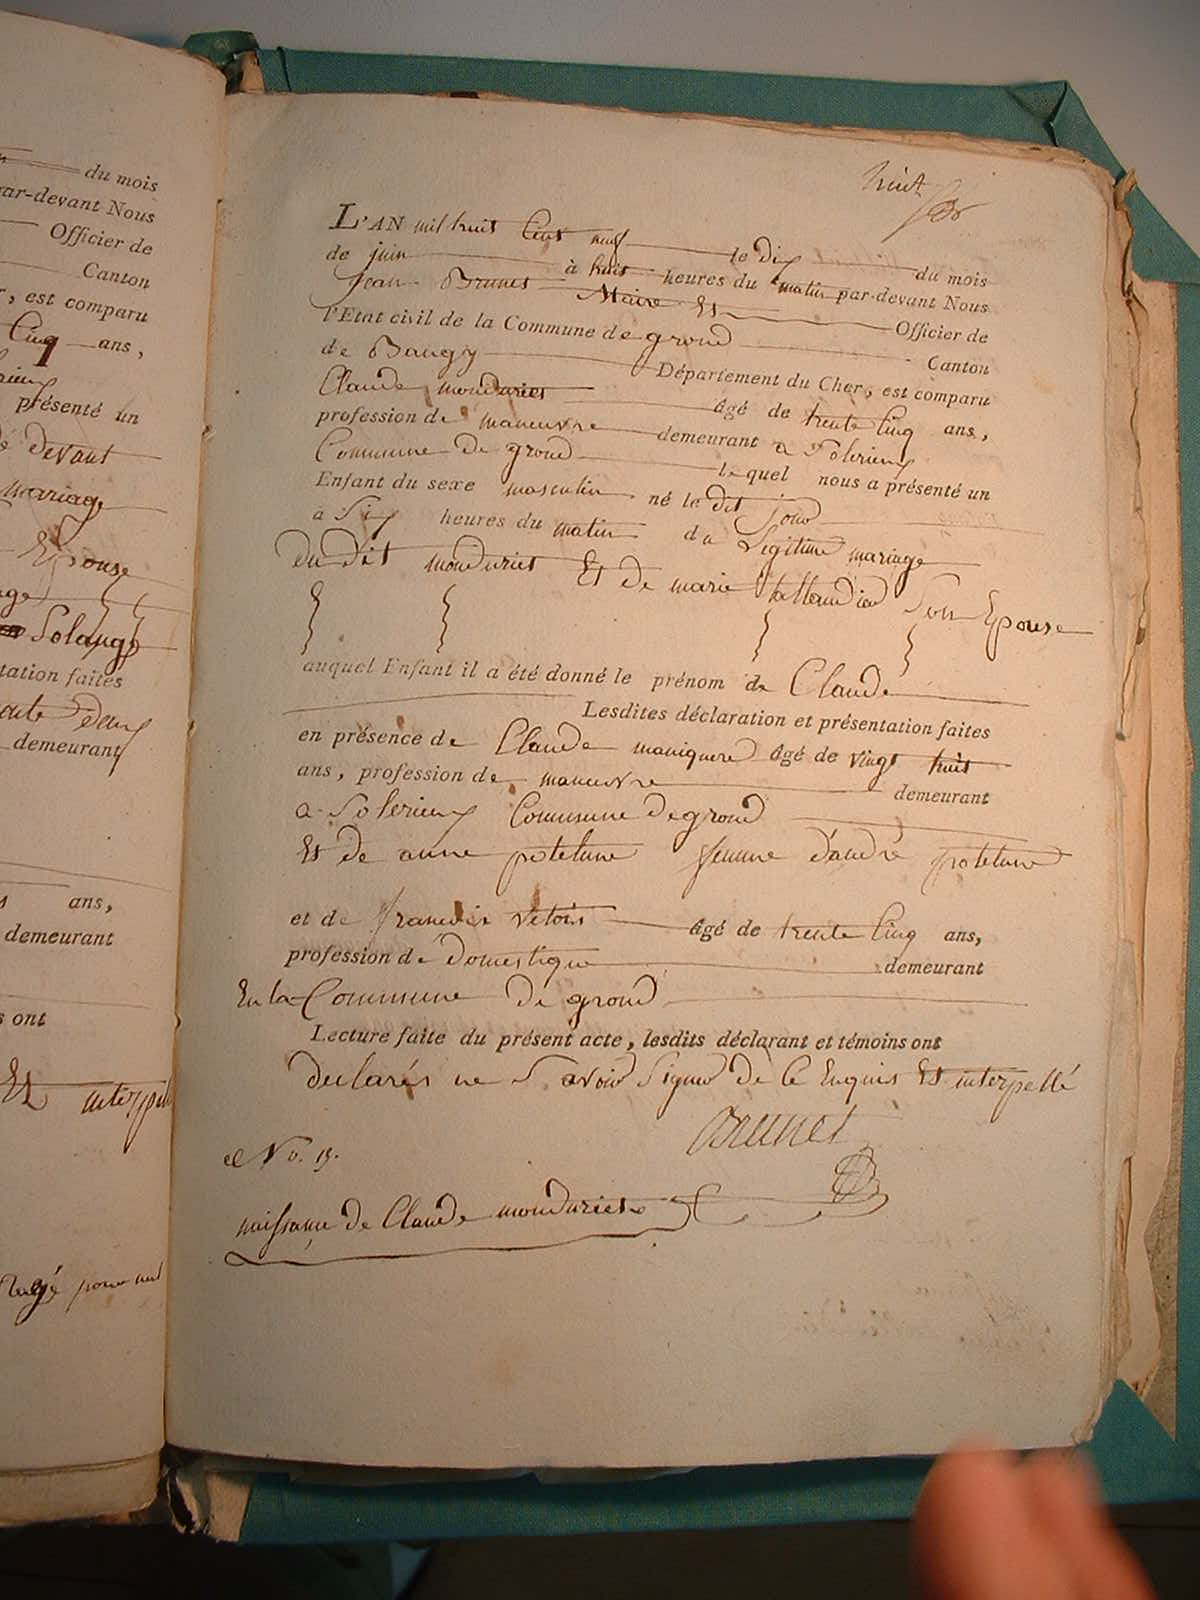 du mois
par-devant Nous
Officier de
Canton
r, est comparu
Cinq ans,
présenté un
devant
mariage
Epouse
Solange
tation faites
demeurant
ans,
demeurant
s ont
Et interpellé
huit
L'AN mil huit Cent neuf le dix du mois
de juin à huit heures du matin par-devant Nous
Jean Brunet Maire Et Officier de
l'Etat civil de la Commune de grond Canton
de Baugy Département du Cher, est comparu
Claude monduriet âgé de trente Cinq ans,
profession de manœuvre demeurant a Solerieux
Commune de grond lequel nous a présenté un
Enfant du sexe masculin né le dit jour
à Six heures du matin du Legitime mariage
du dit monduriet Et de marie tallandier Son Epouse
auquel Enfant il a été donné le prénom de Claude
Lesdites déclaration et présentation faites
en présence de Claude maniquere âgé de vingt huit
ans, profession de manœuvre demeurant
a Solerieux Commune de grond
Et de anne potelune femme d'andré potelune
et de francois vetois âgé de trente Cinq ans,
profession de domestique demeurant
En la Commune de grond
Lecture faite du présent acte, lesdits déclarant et témoins ont
declarés ne Savoir Signer de Ce Enquis Et interpellé
Brunet
No. 15.
naissance de Claude monduriet